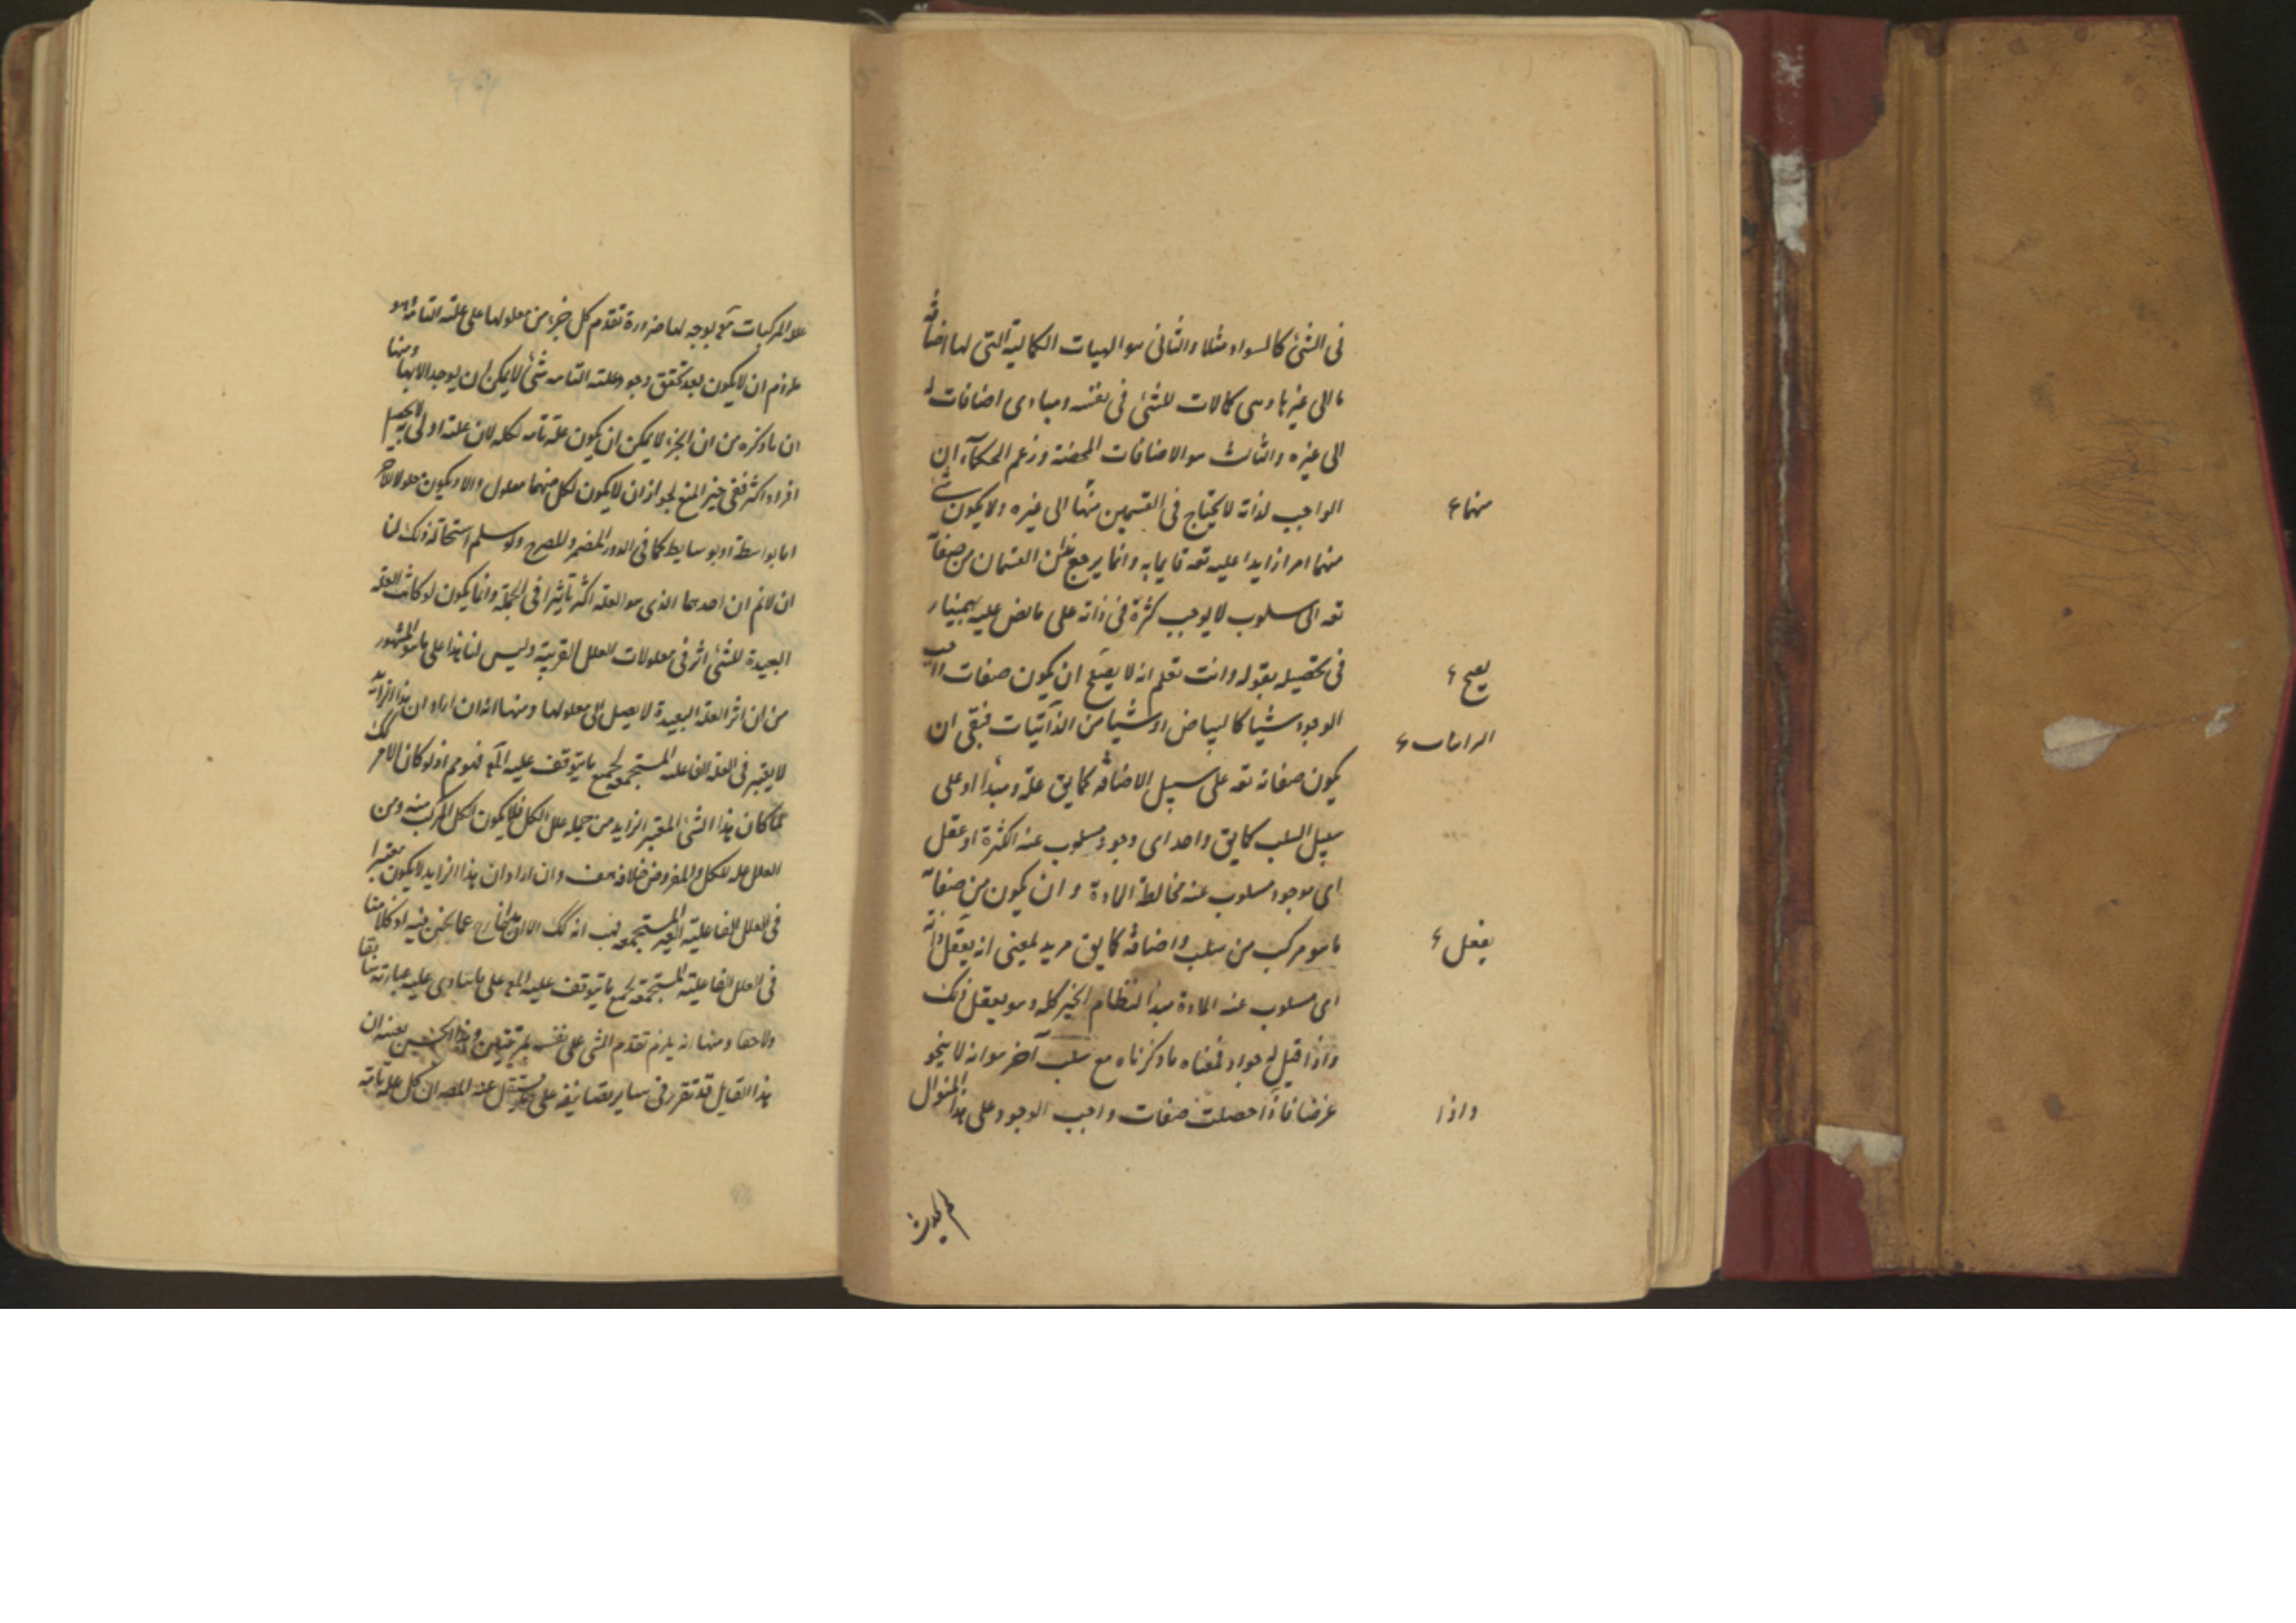 فى الشئ كالسواد مثلا والثانى هو الهيات الكمالية التى لها اضافة
ما الى غيرها وهى كمالات للشئ فى نفسه ومبادى اضافات له
الى غيره والثالث هو الاضافات المحضة وزعم الحكمآء ان
الواجب لذاته لا يحتاج فى القسمين منها الى غيره ولا يكون شئ
منهما امرا زايدا عليه تعه قايما به وانما يرجع القسمان من صفاته
تعه الى سلوب لا يوجب كثرة فى ذاته على ما نص عليه بهمنيار
فى تحصيله بقوله وانت تعلم انه لا يصح ان يكون صفات واجب
الوجود شيا كالبياض او شيا من الذاتيات فبقى ان
يكون صفاته تعه على سبيل الاضافة كما يق علة ومبدا او على
سبيل السلب كما يق واحد اى وجود مسلوب عنه الكثرة او عقل
اى موجود مسلوب عنه مخالطة المادة وان يكون من صفاته
ما هو مركب من سلب واضافة كما يق مريد لمعنى انه يعقل ذاته
اى مسلوب عنه المادة مبدا لنظام الخير كله وهو يعقل ذلك
واذا قيل له جواد فمعناه ما ذكرناه مع سلب آخر هو انه لا ينحو
غرضا فاذا حصلت صفات واجب الوجود على هذا المنوال
منهما ع
يصح ع
يفعل ع
واذا
لم يحدث
المركبات لا يوجه لها ضرورة تقدم كل جزء من معلولها على علته التامة وهو
ملزوم ان لا يكون بعد تحقق وجود علته التامه شئ لا يمكن ان يوجد الا بها ومنها
ان ما ذكره من ان الجزء لا يمكن ان يكون علة تامه لكله لان علته اولى به
افراد اكثر ففى حيز المنع لجواز ان لا يكون لكل منهما معلول والا ويكون معلولا لاخر
اما بواسطة او بوسايط كما فى الدور المضمر والمصرح ولو سلم استحالة ذلك لنا
ان لا نم ان احدهما الذى هو العلة اكثر تأثيرا فى الجملة وانما يكون لو كانت العلة
البعيدة للشئ اثر فى معلولات العلل القريبة وليس لنا هذا على ما هو المشهور
من ان اثر العلة البعيدة لا يصل الى معلولها ومنها انه ان اراد ان هذا الزايد
لا يعتبر فى العلة الفاعلة المستجمعة لجميع ما يتوقف عليه المع فهو مم اذ لو كان الامر كذلك
لما كان هذا الشئ المعتبر الزايد من جملة علل الكل فلا يكون الكل المركب منه ومن
العلل علة للكل والمفروض خلافه هف وان اراد ان هذا الزايد لا يكون معتبرا
فى العلل الفاعلية الغير المستجمعة فهب انه كك الا ان خارج عما نحن فيه اذ كلامنا
فى العلل الفاعلية المستجمعة لجميع ما يتوقف عليه المع على ما ينادى عليه عبارته سابقا
ولاحقا ومنها انه يلزم تقدم الشى على نفسه بمرتبتين
هذا القايل قد تقرر فى ساير تصانيفه على ان كل علة تامة